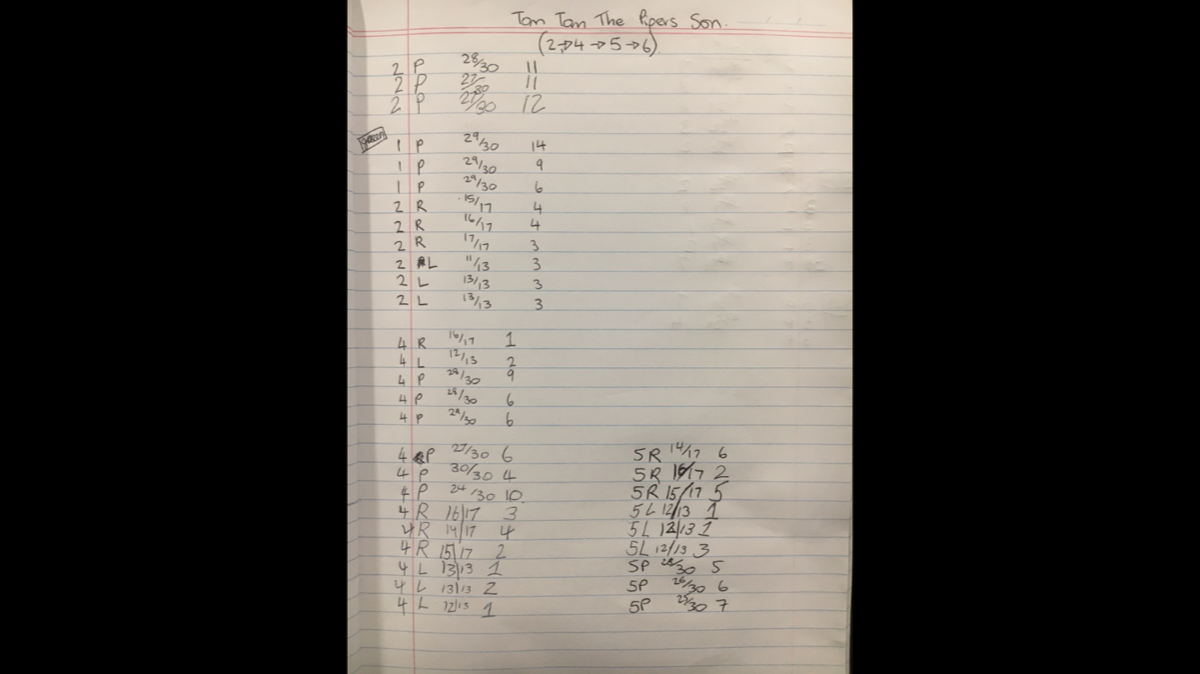 Tom Tom The Pipers Son.
(2→4→5→6)
2 P 28/30 11
2 P 27/30 11
2 P 27/30 12
1 P 29/30 14
1 P 29/30 9
1 P 29/30 6
2 R 15/17 4
2 R 16/17 4
2 R 17/17 3
2 L 11/13 3
2 L 13/13 3
2 L 13/13 3
4 R 16/17 1
4 L 12/13 2
4 P 28/30 9
4 P 28/30 6
4 P 28/30 6
4 P 27/30 6
4 P 30/30 4
4 P 24/30 10
4 R 16/17 3
4 R 14/17 4
4 R 15/17 2
4 L 13/13 1
4 L 13/13 2
4 L 12/13 1
5R 14/17 6
5R 16/17 2
5R 15/17 5
5L 12/13 1
5L 12/13 1
5L 12/13 3
5P 28/30 5
5P 26/30 6
5P 25/30 7